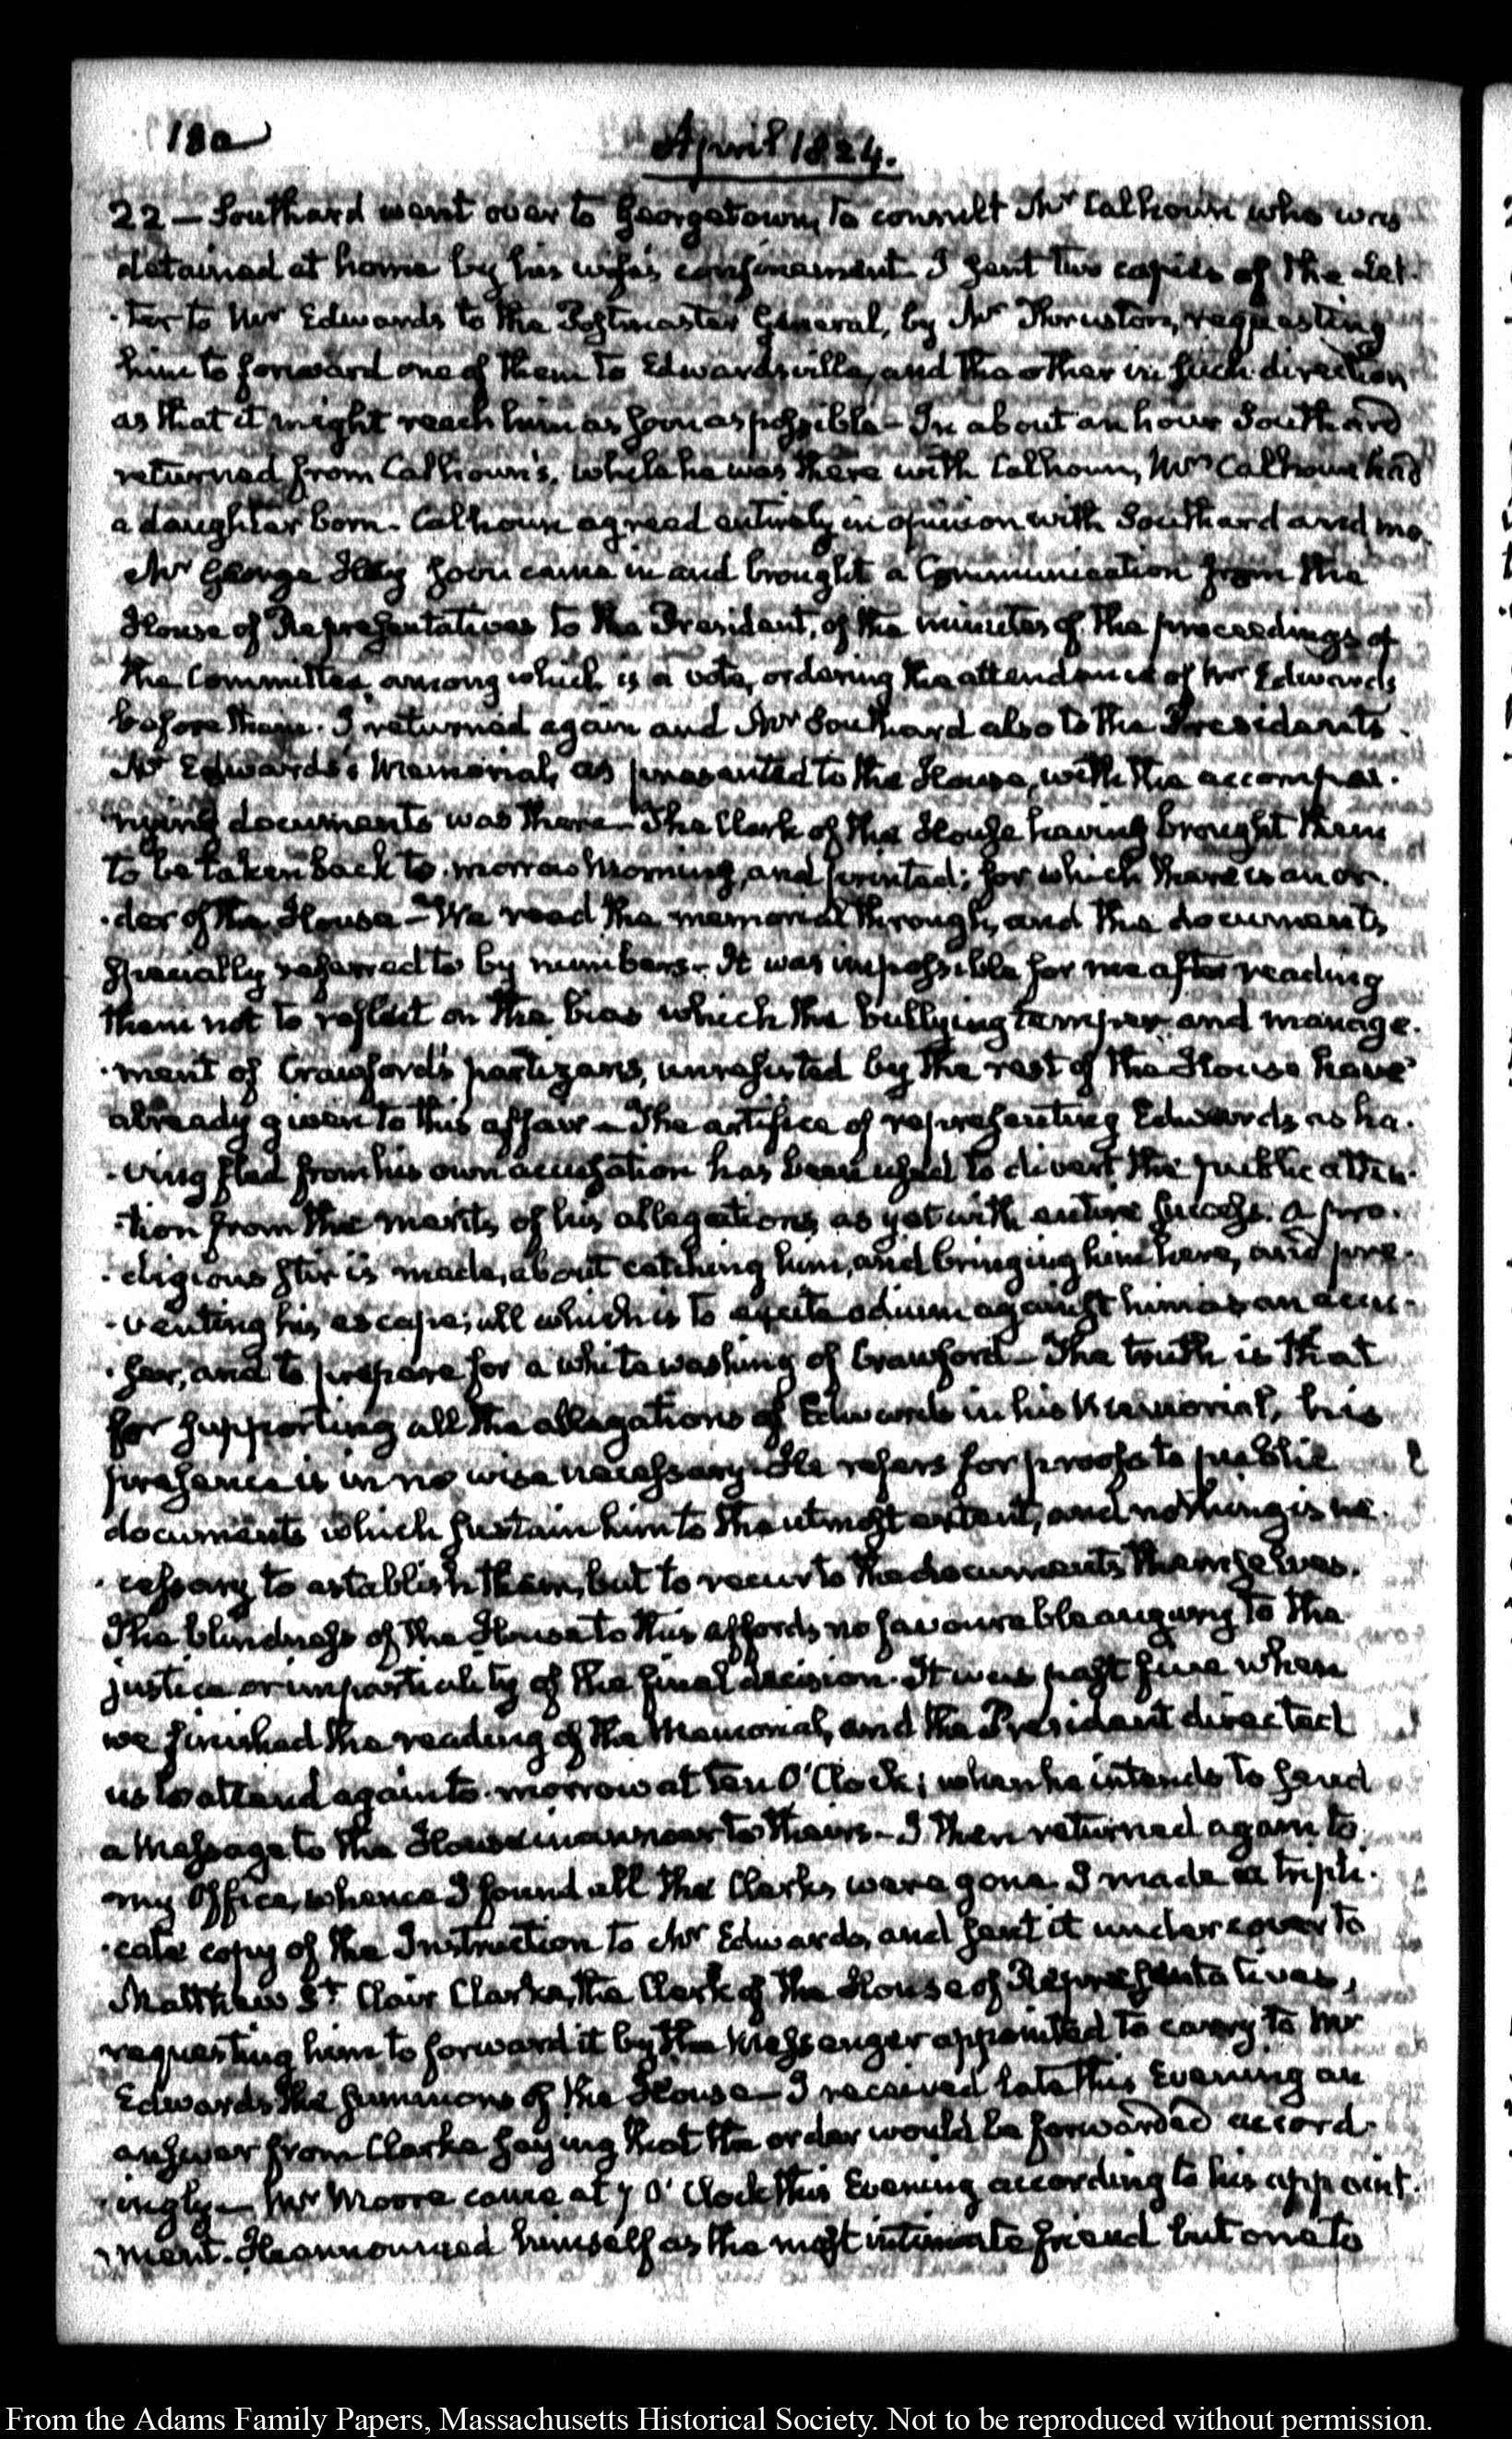 180
April 1824.
22 — Southard went over to Georgetown, to consult Mr Calhoun who was
detained at home by his wife's confinement. I sent two copies of the Let-
-ter to Mr Edwards to the Postmaster General, by Mr Thruston, requesting
him to forward one of them to Edwardsville, and the other in such direction
as that it might reach him as soon as possible — In about an hour Southard
returned from Calhoun's, while he was there with Calhoun, Mrs Calhoun had
a daughter born. Calhoun agreed entirely in opinion with Southard and me.
Mr George Hay soon came in and brought a Communication from the
House of Representatives to the President, of the minutes of the proceedings of
the Committee, among which is a vote, ordering the attendance of Mr Edwards
before them. I returned again and Mr Southard also to the Presidents.
Mr Edwards's Memorial, as presented to the House, with the accompa-
nying documents was there — The Clerk of the House having brought them
to be taken back to-morrow Morning, and printed; for which there is an or-
-der of the House — We read the memorial through, and the documents
specially referred to by numbers — It was impossible for me after reading
them not to reflect on the bias which the bullying temper and manage-
-ment of Crawford's partizans, unresisted by the rest of the House have
already given to this affair — The artifice of representing Edwards as ha-
-ving fled from his own accusation has been used to divert the public atten-
-tion from the merits of his allegations, as yet with entire success. A pro-
-digious stir is made, about catching him, and bringing him here, and pre-
-venting his escape; all which is to excite odium against him as an accu-
-ser, and to prepare for a white washing of Crawford — The truth is that
for supporting all the allegations of Edwards in his Memorial, his
presence is in no wise necessary. He refers for proofs to public
documents which sustain him to the utmost extent, and nothing is ne-
-cessary to establish them, but to recur to the documents themselves.
The blindness of the House to this affords no favourable augury to the
justice or impartiality of the final decision. It was past five when
we finished the reading of the Memorial, and the President directed
us to attend again to-morrow at ten O'Clock; when he intends to send
a Message to the House in answer to theirs — I then returned again to
my Office, whence I found all the Clerks were gone. I made a tripli-
-cate copy of the Instruction to Mr Edwards, and sent it under cover to
Matthew St Clair Clarke, the Clerk of the House of Representatives,
requesting him to forward it by the Messenger appointed to carry to Mr
Edwards the summons of the House — I received late this Evening an
answer from Clarke saying that the order would be forwarded accord-
-ingly — Mr Moore came at 7 O'Clock this Evening according to his appoint-
-ment. He announced himself as the most intimate friend but one to
From the Adams Family Papers, Massachusetts Historical Society. Not to be reproduced without permission.